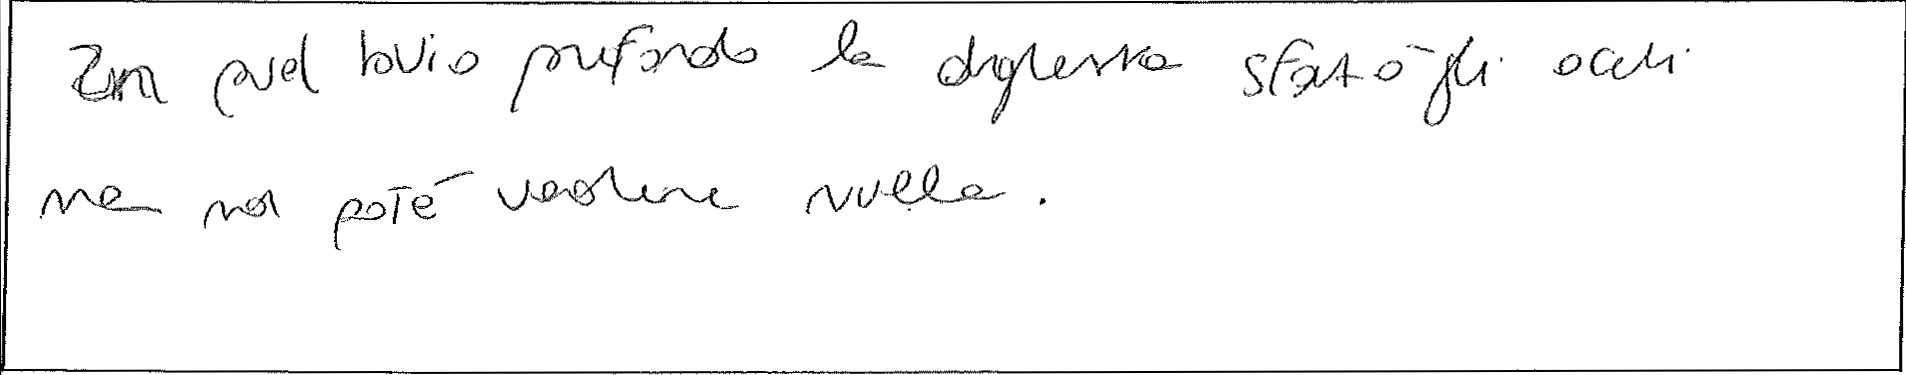 In quel buio profondo la diglesma sfatò gli occhi
ma non poté vederne nulla.